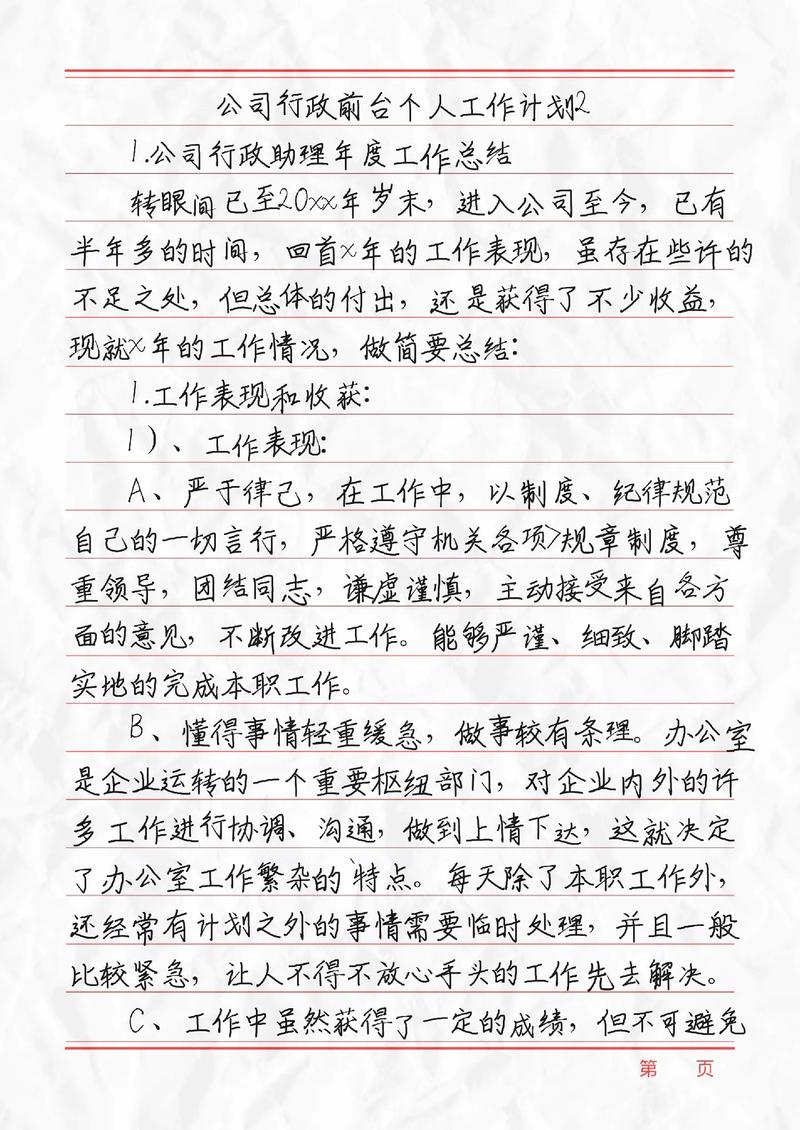 公司行政前台个人工作计划2
1.公司行政助理年度工作总结
转眼间已至20xx年岁末，进入公司至今，已有
半年多的时间，回首x年的工作表现，虽存在些许的
不足之处，但总体的付出，还是获得了不少收益，
现就x年的工作情况，做简要总结：
1.工作表现和收获：
1）、工作表现：
A、严于律己，在工作中，以制度、纪律规范
自己的一切言行，严格遵守机关各项>规章制度，尊
重领导，团结同志，谦虚谨慎，主动接受来自各方
面的意见，不断改进工作。能够严谨、细致、脚踏
实地的完成本职工作。
B、懂得事情轻重缓急，做事较有条理。办公室
是企业运转的一个重要枢纽部门，对企业内外的许
多工作进行协调、沟通，做到上情下达，这就决定
了办公室工作繁杂的`特点。每天除了本职工作外，
还经常有计划之外的事情需要临时处理，并且一般
比较紧急，让人不得不放心手头的工作先去解决。
C、工作中虽然获得了一定的成绩，但不可避免
第 页